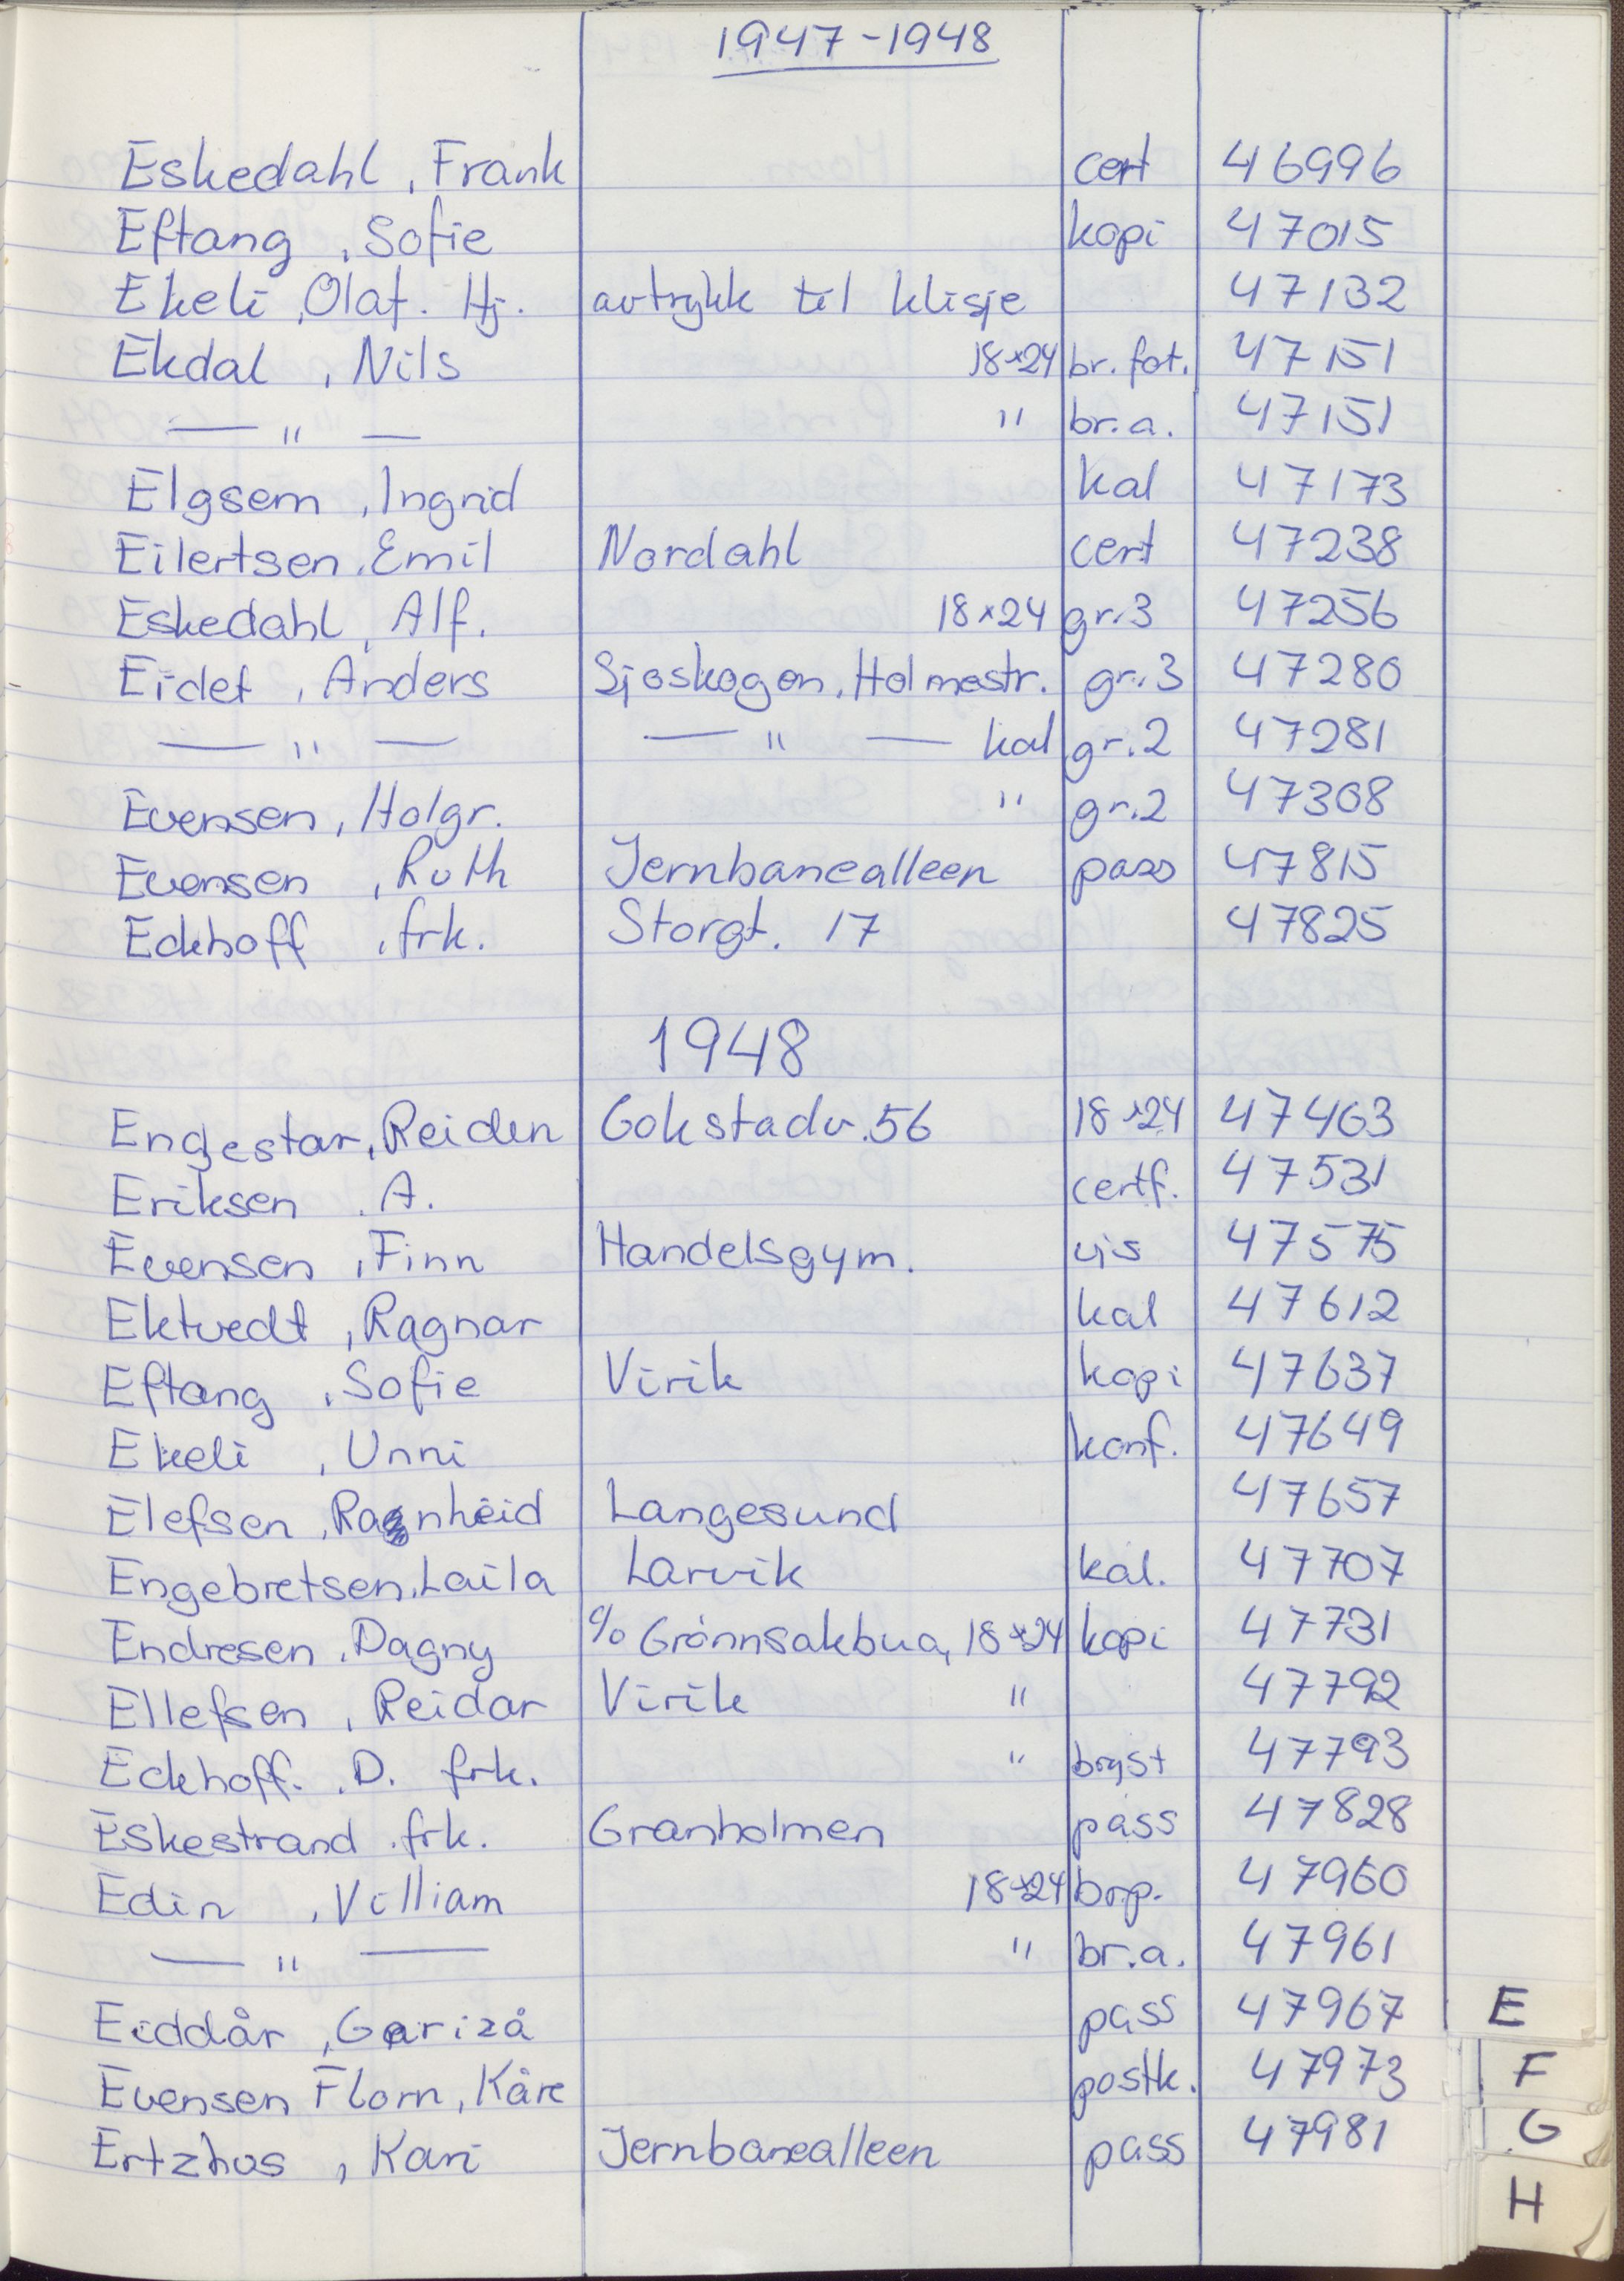 1947-1948
Eskedahl, Frank cert 46996
Eftang, Sofie kopi 47015
Ekeli, Olaf. Hj. avtrykk til klisje 47132
Ekdal, Nils 18×24 br. fot. 47151
— " — " br. a. 47151
Elgsem, Ingrid kal 47173
Eilertsen, Emil Nordahl cert 47238
Eskedahl, Alf. 18×24 gr. 3 47256
Eidet, Anders Sjøskogen, Holmestr. gr. 3 47280
— " — — " — kal gr. 2 47281
Evensen, Holgr. " gr. 2 47308
Evensen, Ruth Jernbanealleen pass 47815
Eckhoff, frk. Storgt. 17 47825
1948
Engestar, Reiden Gokstadv. 56 18×24 47463
Eriksen, A. certf. 47531
Evensen, Finn Handelsgym. vis 47575
Ektvedt, Ragnar kal 47612
Eftang, Sofie Virik kopi 47637
Ekeli, Unni konf. 47649
Elefsen, Ragnheid Langesund 47657
Engebretsen, Laila Larvik kal. 47707
Endresen, Dagny c/o Grönnsakbua, 18×24 kopi 47731
Ellefsen, Reidar Virik " 47792
Eckhoff. D. frk. " bryst 47793
Eskestrand, frk. Granholmen pass 47828
Edin, Villiam 18×24 47960
— " — " br. a. 47961
Eiddår, Garizå pass 47967
Evensen Florn, Kåre postk. 47973
Ertzhus, Kari Jernbanealleen pass 47981
E
F
G
H